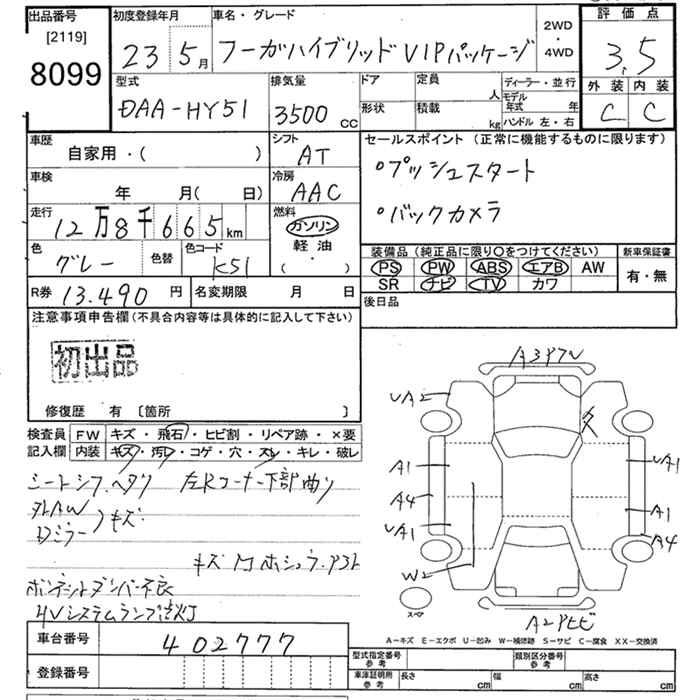 出品番号
[2119]
8099
初度登録年月
23 5月
車名・グレード
フーガハイブリッド VIPパッケージ
2WD
・
4WD
評価点
3.5
外装 内装
C C
型式
DAA-HY51
排気量
3500 CC
ドア
形状
定員 人
積載 kg
ディーラー・並行
モデル年式 年
ハンドル 左・右
車歴
自家用・( )
シフト
AT
車検
年 月( 日)
冷房
AAC
走行
12万8千665km
燃料
ガソリン
軽油
( ・ )
色
グレー
色替
色コード
K51
セールスポイント (正常に機能するものに限ります)
・プッシュスタート
・バックカメラ
装備品 (純正品に限り〇をつけてください)
PS PW ABS エアB AW
SR ナビ TV カワ
新車保証書
有・無
R券 13.490 円
名変期限 月 日
後日品
注意事項申告欄 (不具合内容等は具体的に記入して下さい)
初出品
修復歴 有 〔箇所 〕
検査員記入欄
FW キズ・飛石・ヒビ割・リペア跡・×要
内装 キズ・汚レ・コゲ・穴・スレ・キレ・破レ
シートシワ.ヘタリ 左Rコーナー下部曲り
外AW
Dミラー
キズ.
ボンネットダンパー不良
HVシステムランプ点灯
UA2
A1
A4
UA1
W2
UA1
A1
A4
スペア
A-キズ E-エクボ U-凹み W-補修跡 S-サビ C-腐食 XX-交換済
車台番号
402777
登録番号
型式指定番号
参考
類別区分番号
参考
車庫証明用
参考
長さ cm
幅 cm
高さ cm